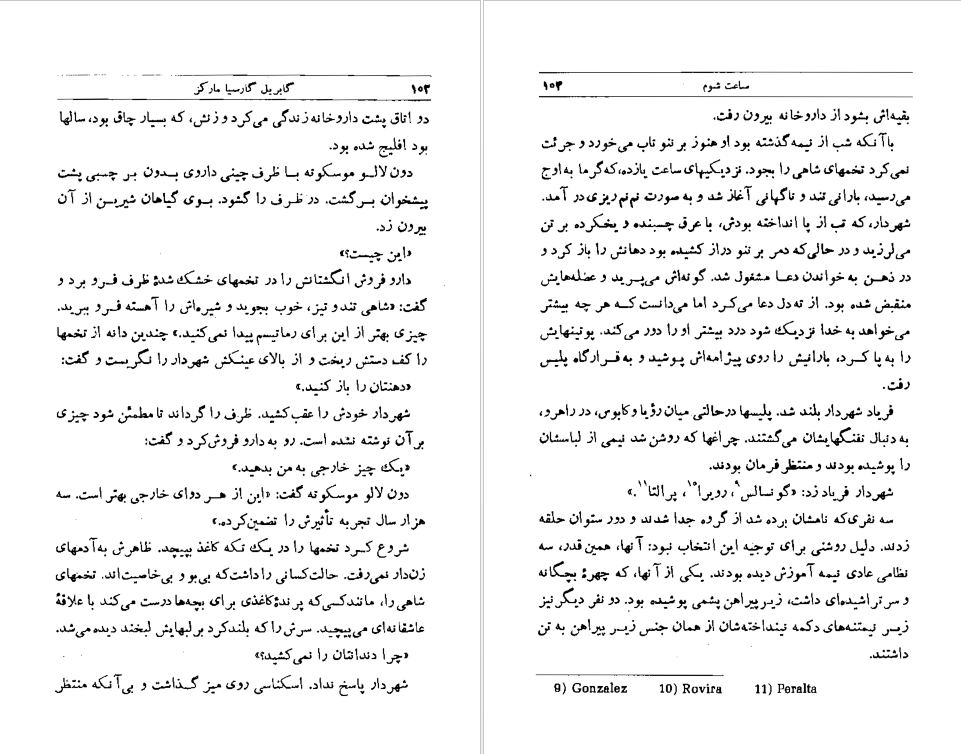 ۱۰۳ گابریل گارسیا مارکز
دو اتاق پشت داروخانه زندگی می‌کرد و زنش، که بسیار چاق بود، سالها
بود افلیج شده بود.
دون لالو موسکوته با ظرف چینی داروی بدون بر چسبی پشت
پیشخوان برگشت. در ظرف را گشود. بوی گیاهان شیرین از آن
بیرون زد.
«این چیست؟»
دارو فروش انگشتانش را در تخمهای خشک شدهٔ ظرف فرو برد و
گفت: «شاهی تند و تیز، خوب بجوید و شیره‌اش را آهسته فرو ببرید.
چیزی بهتر از این برای رماتیسم پیدا نمی‌کنید.» چندین دانه از تخمها
را کف دستش ریخت و از بالای عینکش شهردار را نگریست و گفت:
«دهنتان را باز کنید.»
شهردار خودش را عقب‌کشید. ظرف را گرداند تا مطمئن شود چیزی
بر آن نوشته نشده است. رو به دارو فروش‌کرد و گفت:
«یک چیز خارجی به من بدهید.»
دون لالو موسکوته گفت: «این از هر دوای خارجی بهتر است. سه
هزار سال تجربه تأثیرش را تضمین‌کرده.»
شروع کرد تخمها را در یک تکه کاغذ بپیچد. ظاهرش به‌آدمهای
زن‌دار نمی‌رفت. حالت‌کسانی را داشت‌که بی‌بو و بی‌خاصیت‌اند. تخمهای
شاهی را، مانندکسی‌که پرندهٔ‌کاغذی برای بچه‌ها درست می‌کند با علاقهٔ
عاشقانه‌ای می‌پیچید. سرش را که بلندکرد بر لبهایش لبخند دیده می‌شد.
«چرا دندانتان را نمی‌کشید؟»
شهردار پاسخ نداد. اسکناسی روی میز گذاشت و بی‌آنکه منتظر
ساعت شوم ۱۰۴
بقیه‌اش بشود از داروخانه بیرون رفت.
با آنکه شب از نیمه گذشته بود او هنوز بر ننو تاب می‌خورد و جرئت
نمی‌کرد تخمهای شاهی را بجود. نزدیکیهای ساعت یازده،که‌گرما به اوج
می‌رسید، بارانی تند و ناگهانی آغاز شد و به صورت نم‌نم‌ریزی در آمد.
شهردار، که تب از پا انداخته بودش، با عرق چسبنده و یخکرده بر تن
می‌لرزید و در حالی‌که دمر بر ننو دراز کشیده بود دهانش را باز کرد و
در ذهن به خواندن دعا مشغول شد. گونه‌اش می‌پرید و عضله‌هایش
منقبض شده بود. از ته‌دل دعا می‌کرد اما می‌دانست‌که هر چه بیشتر
می‌خواهد به خدا نزدیک شود درد بیشتر او را دور می‌کند. پوتینهایش
را به پا کرد، بارانیش را روی پیژامه‌اش پوشید و به قرارگاه پلیس
رفت.
فریاد شهردار بلند شد. پلیسها درحالتی میان رؤیا و کابوس، در راهرو،
به دنبال تفنگهایشان می‌گشتند. چراغها که روشن شد نیمی از لباسشان
را پوشیده بودند و منتظر فرمان بودند.
شهردار فریاد زد: «گونسالس۹، رویرا۱۰، پرالتا۱۱.»
سه نفری‌که نامشان برده شد از گروه جدا شدند و دور ستوان حلقه
زدند. دلیل روشنی برای توجیه این انتخاب نبود: آنها، همین‌قدر، سه
نظامی عادی نیمه آموزش دیده بودند. یکی از آنها، که چهرهٔ بچگانه
و سر تراشیده‌ای داشت، زیر پیراهن پشمی پوشیده بود. دو نفر دیگر نیز
زیر نیمتنه‌های دکمه نینداخته‌شان از همان جنس زیر پیراهن به تن
داشتند.
9) Gonzalez 10) Rovira 11) Peralta